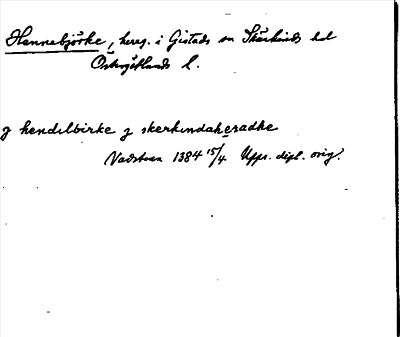 Hennebjörke, hereg. i Gistads sn Skärkinds hd
Östergötlands l.
g hendilbirke g skerkindaheradhe
Vadstena 1384 15/4 Upps. dipl. orig.